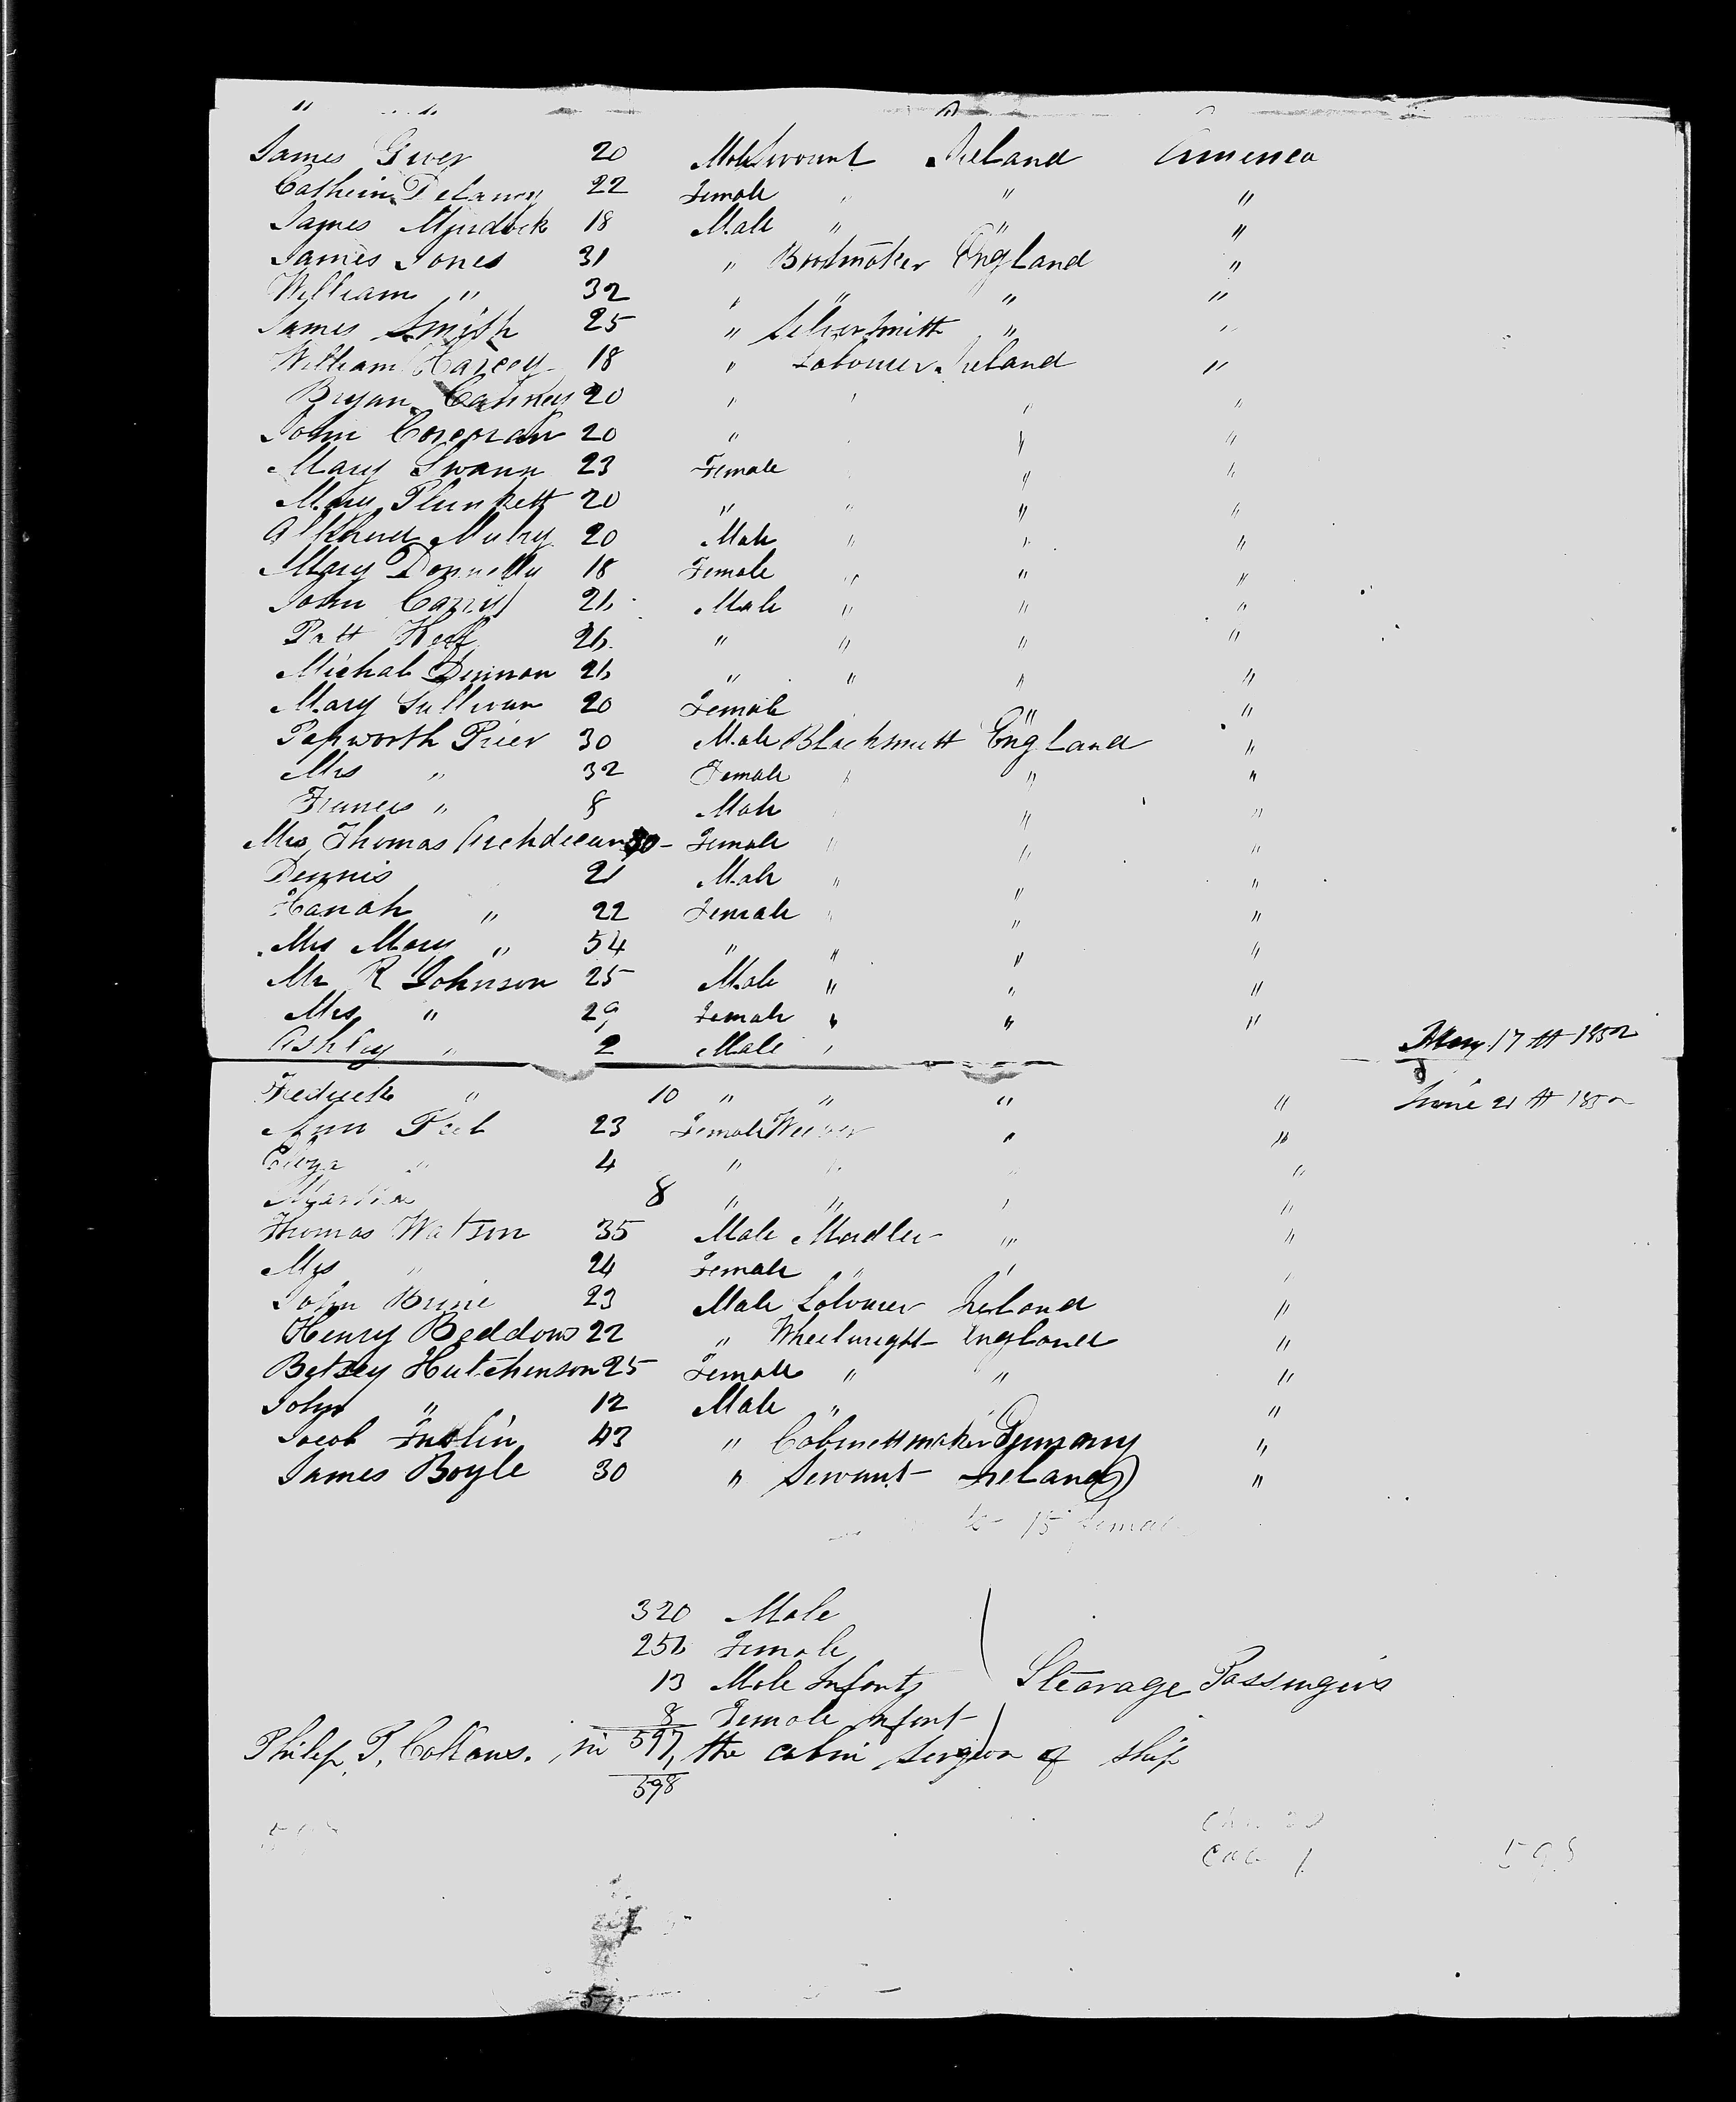 James Greer 20 Male Servant Ireland America
Catherin Delaney 22 Female " " "
James Murdock 18 Male " " "
James Jones 31 " Bootmaker England "
William " 32 " " " "
James Smith 25 " Silversmith " "
William 18 " Labourer Ireland "
Bryan 20 " " " "
John Corcoran 20 " " "
Mary Swann 23 Female " "
Mary Plunkett 20 " " " "
20 Male " " "
Mary Donnelly 18 Female " " "
John 26 Male " " "
Patt 26 " " " "
Michal 26 " " " "
Mary Sullivan 20 Female " "
Papworth Prier 30 Male Blacksmith England "
Mrs " 32 Female " " "
Francis " 8 Male " "
Mrs Thomas Archdecan 30 - Female " " "
Dennis 21 Male " " "
Hanah " 22 Female " " "
Mrs Mary " 54 " " " "
Mr R Johnson 25 Male " " "
Mrs " 29 Female " " "
Ashley " 2 Male " May 17 tt 1852
Fredrick " 10 " " " " June 21 tt 1852
Ann 23 Female Weever " "
" 4 " " " "
Martha 8 " " " "
Thomas Watson 35 Male " "
Mrs " 24 Female " " "
John Brine 23 Male Labourer Ireland "
Henry Beddows 22 " Wheelwright England "
Betsey Hutchenson 25 Female " " "
John " 12 Male " " "
Jacob 43 " Cabinettmaker Germany "
James Boyle 30 " Servant Ireland "
to 15 female
320 Male
256 Female
13 Male Infants Stearage Passengers
8 Female Infant
Philip T. in 597 the cabin Surgeon of Ship
598
598
1